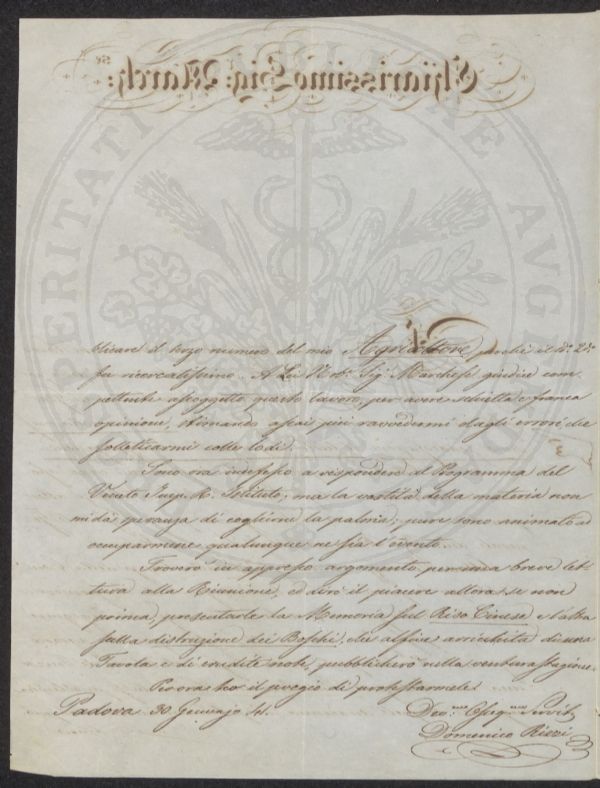 blicare il terzo numero del mio Agricoltore, perchè il 1º. 2º.
fu ricercatissimo. A Lei Nob. Sig. Marchese giudice com
petente assoggetto questo lavoro, per avere schietta e franca
opinione, stimando assai più ravvedermi dagli errori, che
solleticarmi colle lodi.
Sono ora intesso a rispondere al Programma del
Veneto Imp. R. Istituto; ma la vastità della materia non
mi dà speranza di cogliere la palma; pure sono animato ad
occuparmene qualunque ne sia l'evento.
Troverò in appresso argomento per una breve let
tura alla Riunione, ed avrò il piacere allora, se non
prima, presentarle la Memoria sul Riso Cinese e l'altra
sulla distruzione dei Boschi, che alfine arricchita di una
Tavola e di erudite note, pubblicherò nella ventura stagione.
Per ora ho il pregio di protestarmele
Padova 30 Gennajo 41.
Dev.mo Obbg.mo Servit.
Domenico Rizzi